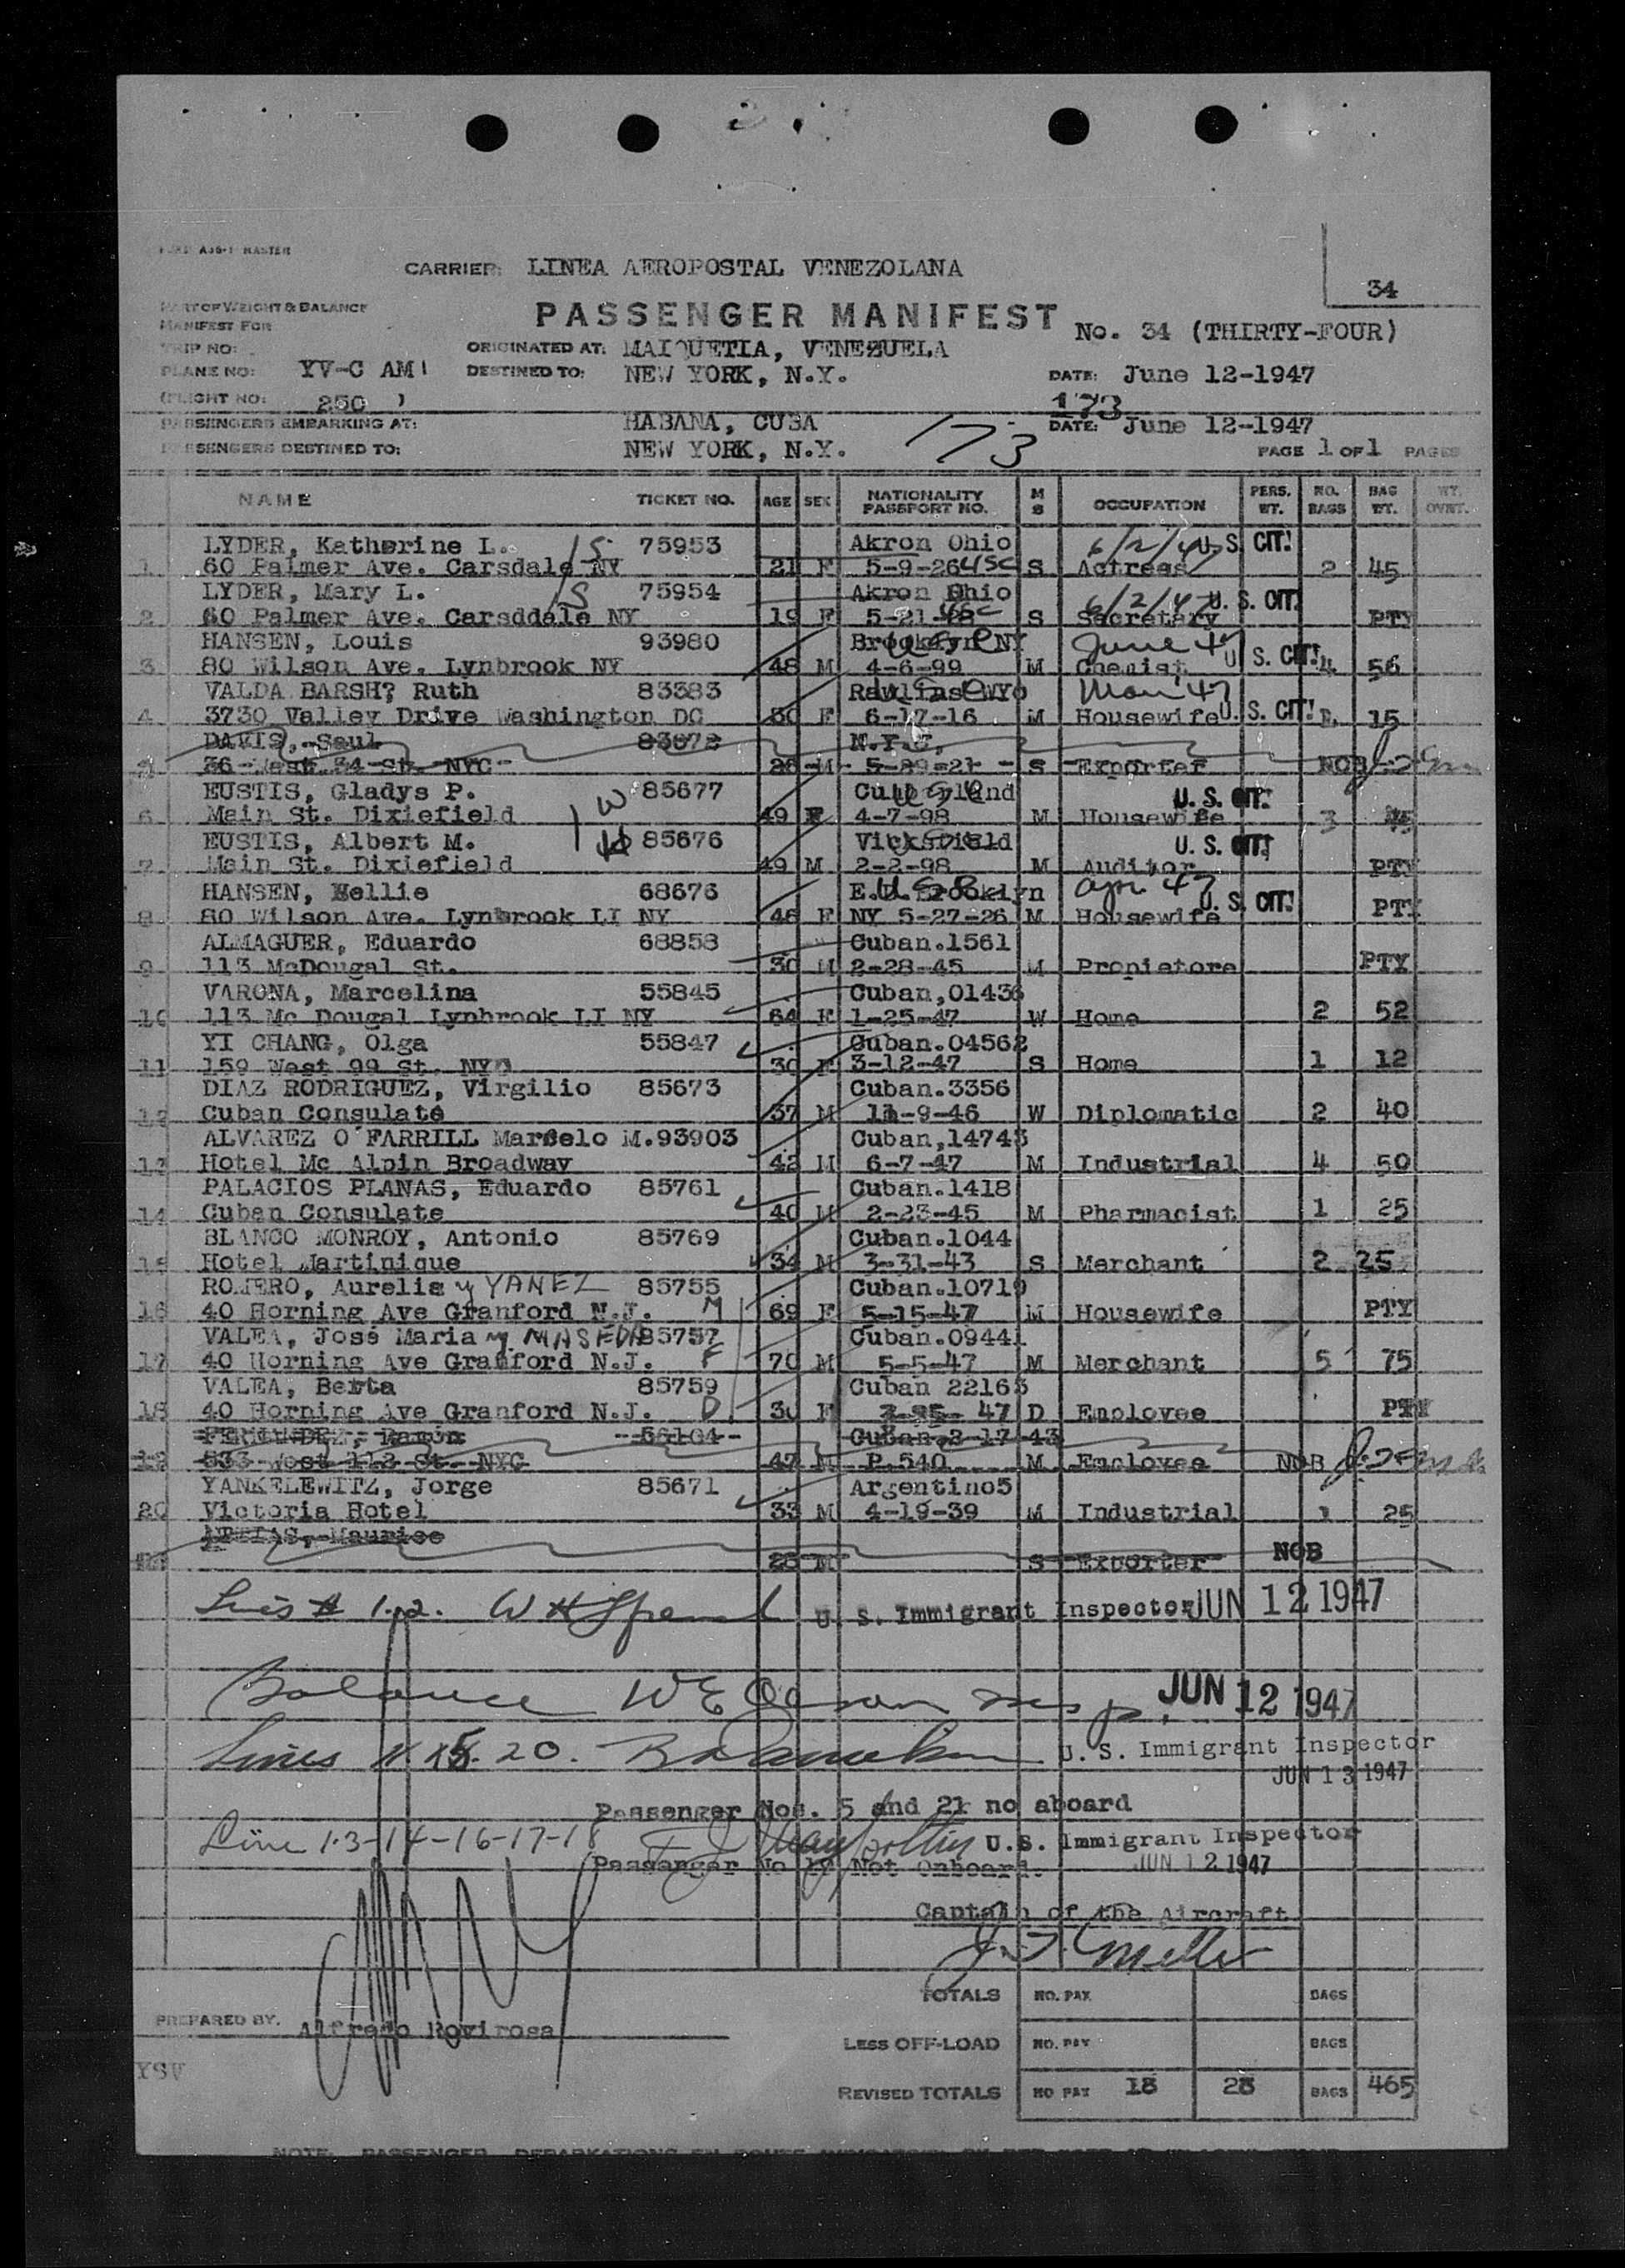 FORM A36-1 MASTER
CARRIER: LINEA AEROPOSTAL VENEZOLANA
34
PART OF WEIGHT & BALANCE
MANIFEST FOR
PASSENGER MANIFEST No. 34 (THIRTY-FOUR)
TRIP NO: ORIGINATED AT: MAIQUETIA, VENEZUELA
PLANE NO: YV-C AM1 DESTINED TO: NEW YORK, N.Y. DATE: June 12-1947
(FLIGHT NO: 250 ) 173
PASSENGERS EMBARKING AT: HABANA, CUBA 173 DATE: June 12-1947
PASSENGERS DESTINED TO: NEW YORK, N.Y. PAGE 1 OF 1 PAGES
NAME TICKET NO. AGE SEX NATIONALITY PASSPORT NO. M S OCCUPATION PERS. WT. NO. BAGS BAG WT. WT. OVNT.
LYDER, Katherine L. 75953 Akron Ohio 6/2/47 U.S. CIT.
1 60 Palmer Ave. Carsdale NY 21 F 5-9-26 USC S Actress 2 45
LYDER, Mary L. 75954 Akron Ohio 6/2/47 U.S. CIT.
2 60 Palmer Ave. Carsddale NY 19 F 5-21-28 S Secretary PTY
HANSEN, Louis 93980 Brooklyn NY June 47 U.S. CIT.
3 80 Wilson Ave. Lynbrook NY 48 M 4-6-99 M Chemist 4 56
VALDA BARSH? Ruth 83383 Rawlins WYO Mar 47 U.S. CIT.
4 3730 Valley Drive Washington DC 30 F 6-17-16 M Housewife 15
DAVIS, Saul 83672 N.Y.C,
36 West 34 St. NYC 26 M 5-29-21 S Exporter NOB
EUSTIS, Gladys P. W 85677 U.S. CIT.
6 Main St. Dixiefield 49 F 4-7-98 M Housewife 3 45
EUSTIS, Albert M. H 85676 U.S. CIT.
7 Main St. Dixiefield 49 M 2-2-98 M Auditor PTY
HANSEN, Nellie 68676 Brooklyn Apr 47 U.S. CIT.
8 80 Wilson Ave. Lynbrook LI NY 48 F NY 5-27-26 M Housewife PTY
ALMAGUER, Eduardo 68858 Cuban.1561
9 113 McDougal St. 30 M 2-28-45 M Propietore PTY
VARONA, Marcelina 55845 Cuban,01436
10 113 Mc Dougal Lynbrook LI NY 64 F 1-25-47 W Home 2 52
YI CHANG, Olga 55847 Cuban.04562
11 159 West 99 St. NYC 30 F 3-12-47 S Home 1 12
DIAZ RODRIGUEZ, Virgilio 85673 Cuban.3356
12 Cuban Consulate 37 M 11-9-46 W Diplomatic 2 40
ALVAREZ O'FARRILL Marcelo M. 93903 Cuban,14743
13 Hotel Mc Alpin Broadway 42 M 6-7-47 M Industrial 4 50
PALACIOS PLANAS, Eduardo 85761 Cuban.1418
14 Cuban Consulate 40 M 2-23-45 M Pharmacist 1 25
BLANCO MONROY, Antonio 85769 Cuban.1044
15 Hotel Martinique 34 M 3-31-43 S Merchant 2 25
ROMERO, Aurelia y YANEZ 85755 Cuban.10719
16 40 Horning Ave Granford N.J. M 69 F 5-15-47 M Housewife PTY
VALEA, José Maria y MASEDA 85757 Cuban.09441
17 40 Horning Ave Granford N.J. F 70 M 5-5-47 M Merchant 5 75
VALEA, Berta 85759 Cuban 22163
18 40 Horning Ave Granford N.J. D 30 F 47 D Employee PTY
FERNANDEZ, Ramón 56104 Cuban,2-17-43
19 533 West 112 St. NYC 47 M P.540 M Employee NOB
YANKELEWITZ, Jorge 85671 Argentino5
20 Victoria Hotel 33 M 4-19-39 M Industrial 1 25
Maurice
25 M S Exporter NOB
1.2. U. S. Immigrant Inspector JUN 12 1947
Balance Insp. JUN 12 1947
Lines 20. U. S. Immigrant Inspector
JUN 13 1947
Passenger Nos. 5 and 21 no aboard
Line 13-14-16-17-18 U.S. Immigrant Inspector
Passenger No 19 Not Onboard. JUN 12 1947
Captain of the Aircraft
TOTALS NO. PAX BAGS
PREPARED BY. Alfredo Rovirosa
LESS OFF-LOAD NO. PAX BAGS
REVISED TOTALS NO PAX 18 28 BAGS 465